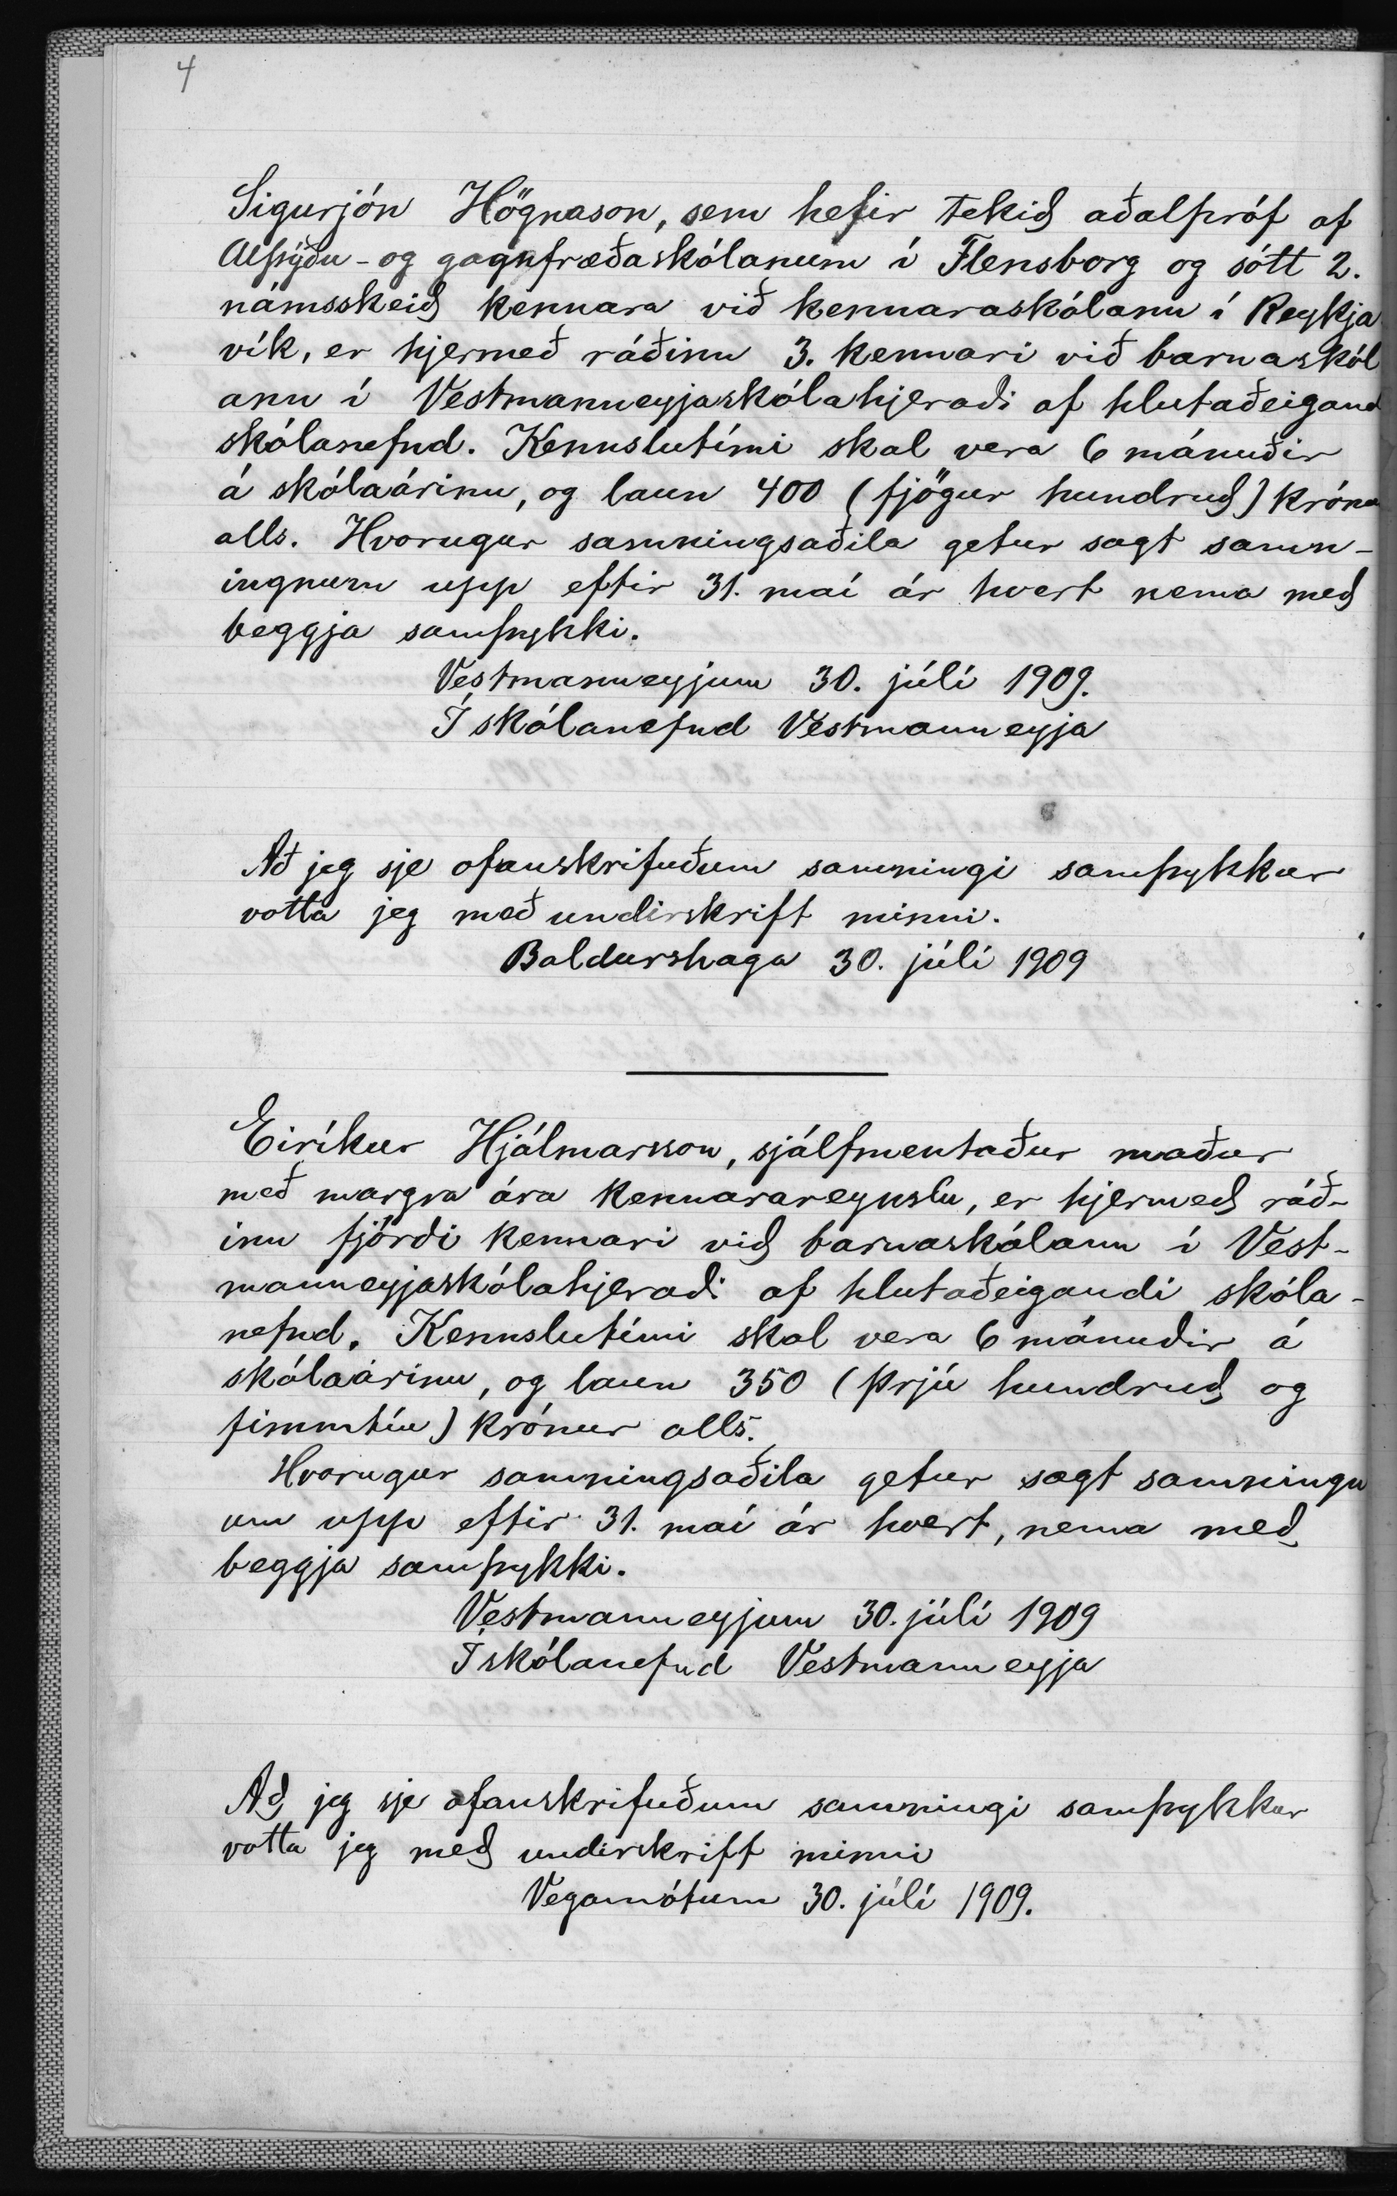 4
Sigurjón Högnason, sem hefir tekið aðalpróf af
Alþýðu- og gagnfræðaskólanum í Flensborg og sótt 2.
námsskeið kennara við kennaraskólann í Reykja
vík, er hjermeð ráðinn 3. kennari við barnaskól
ann í Vestmanneyjaskólahjeraði af hlutaðeigand
skólanefnd. Kennslutími skal vera 6 mánuðir
á skólaárinu, og laun 400 (fjögur hundruð) króna
alls. Hvorugur samningsaðila getur sagt samn-
ingnum upp eftir 31. maí ár hvert nema með
beggja samþykki.
Vestmanneyjum 30. júlí 1909.
Í skólanefnd Vestmanneyja
Að jeg sje ofanskrifuðum samningi samþykkur
votta jeg með undirskrift minni.
Baldurshaga 30. júlí 1909
Eiríkur Hjálmarsson, sjálfmentaður maður
með margra ára kennarareynslu, er hjermeð ráð-
inn fjórði kennari við barnaskólann í Vest-
manneyjaskólahjeraði af hlutaðeigandi skóla-
nefnd. Kennslutími skal vera 6 mánuðir á
skólaárinu, og laun 350 (þrjú hundruð og
fimmtíu) krónur alls.
Hvorugur samningsaðila getur sagt samningn
um upp eftir 31. maí ár hvert, nema með
beggja samþykki.
Vestmanneyjum 30. júlí 1909
Í skólanefnd Vestmanneyja
Að jeg sje ofanskrifuðum samningi samþykkur
votta jeg með undirskrift minni
Vegamótum 30. júlí 1909.